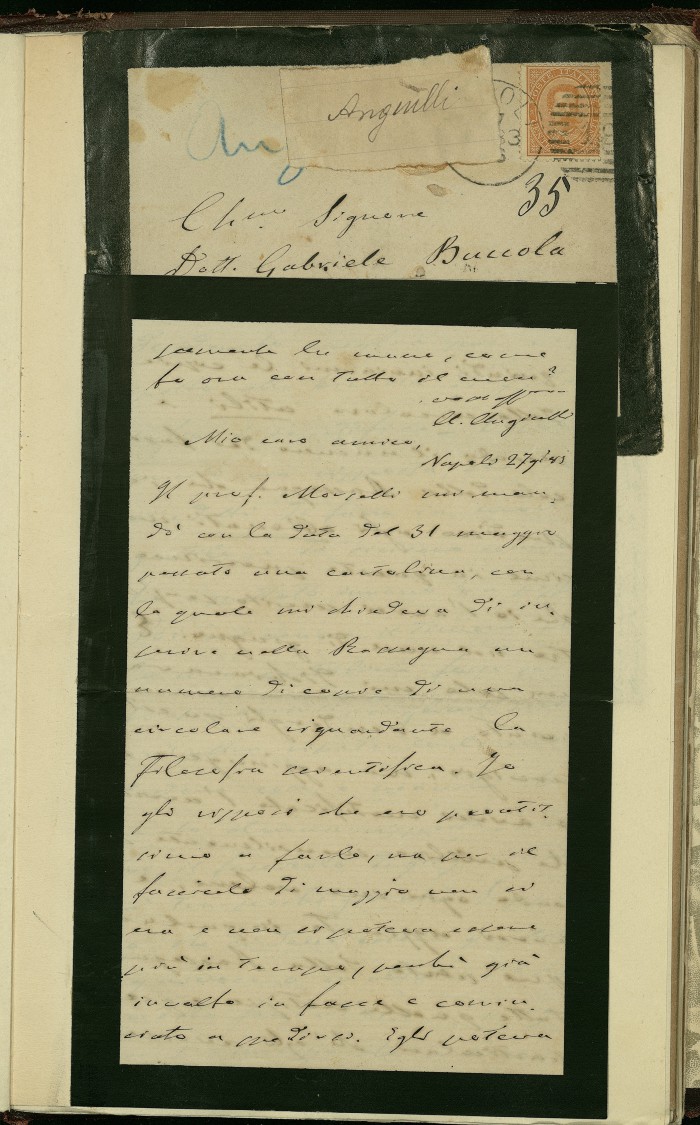 Ang
Angiulli
35
Ch.mo Signore
Dott. Gabriele Buccola
samente la mano, come
fo ora con tutto il cuore
A. Angiulli
Mio caro amico,
Napoli 27 giº 83
Il prof. Morselli mi man-
dò con la data del 31 maggio
passato una cartolina, con
la quale mi chiedeva di in-
serire nella Rassegna un
numero di copie di una
circolare riguardante la
Filosofia scientifica. Io
gli risposi che ero prontis-
simo a farlo, ma per il
fascicolo di maggio non si
era e non si poteva essere
più in tempo, perché già
involto in fasce e comin-
ciato a spedirsi. Egli poteva